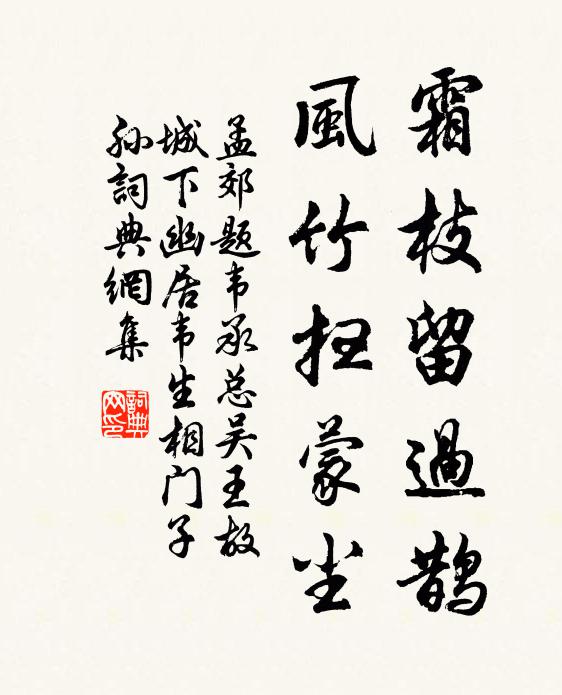 霜枝留過鹊
風竹扫蒙尘
孟郊题韦承总吴王故
城下幽居韦生相门子
孙詞典網集
詞典网印